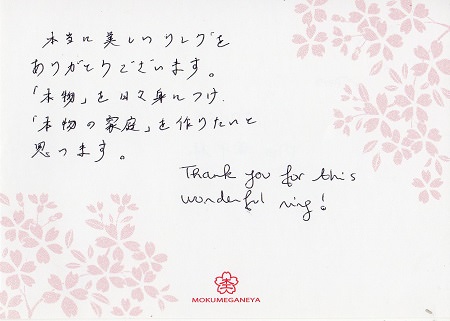 本当に美しいリングを
ありがとうございます。
「本物」を日々身につけ
「本物の家庭」を作りたいと
思います。
Thank you for this
wonderful ring!
MOKUMEGANEYA